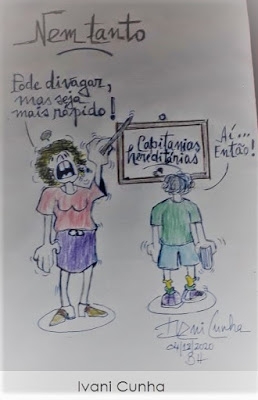 Nem tanto
Pode divagar,
mas seja
mais rápido!
Capitanias
hereditárias
Aí...
Então!
Ivani Cunha
04/12/2020
BH
Ivani Cunha